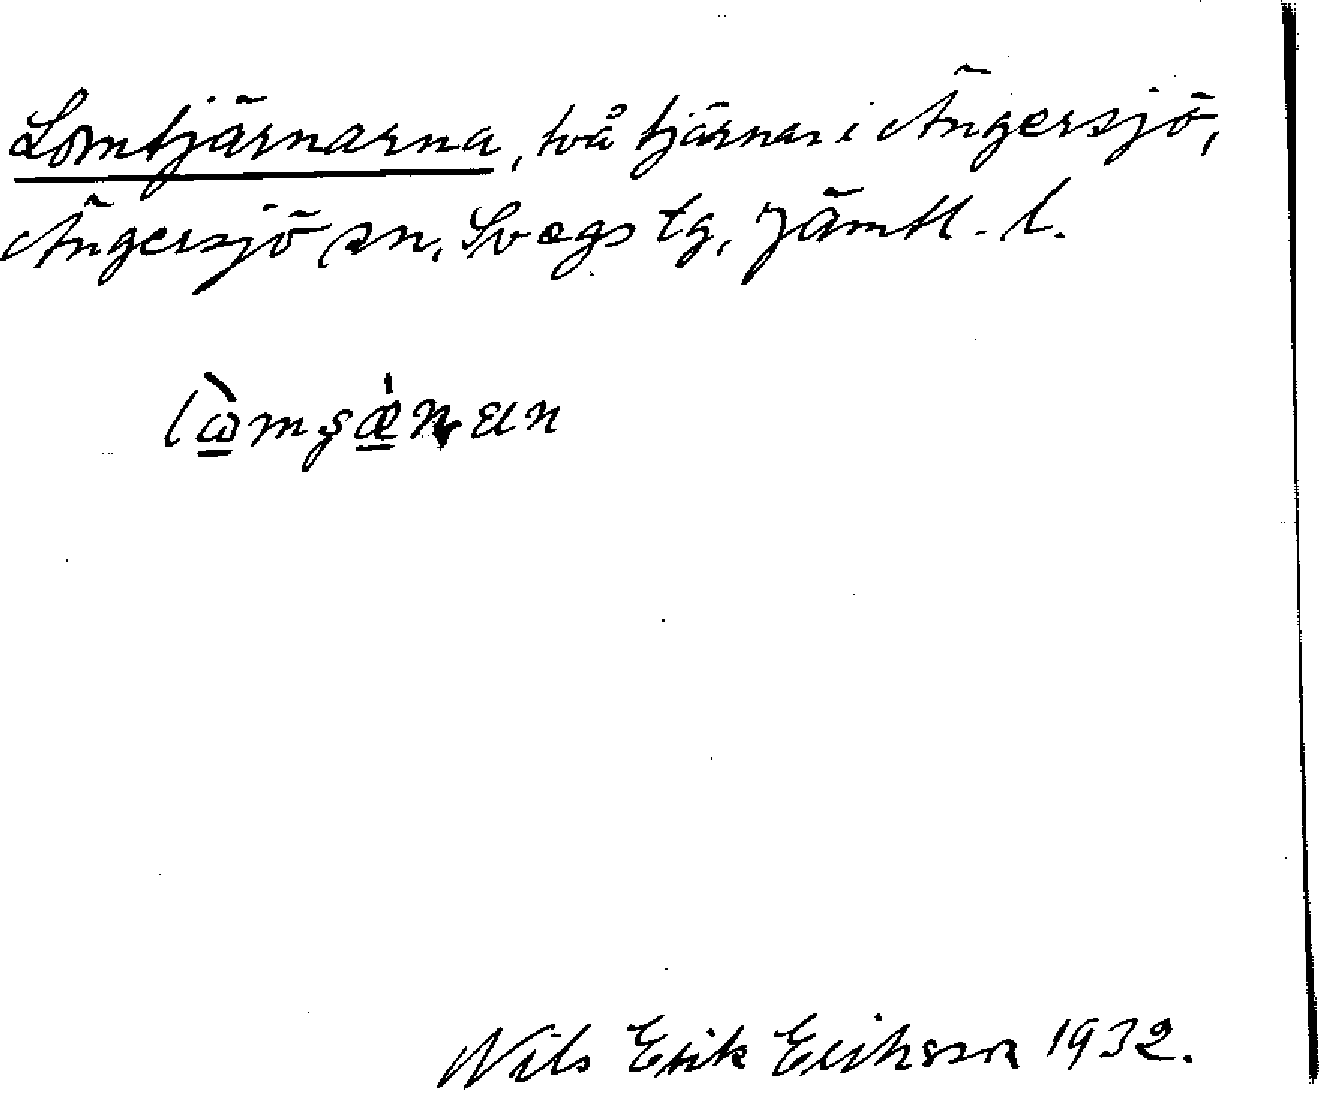 Lomtjärnarna, två tjärnar i Ängersjö,
Ängersjö sn, Svegs tg, Jämtl. l.
Nils Erik Eriksson 1932.